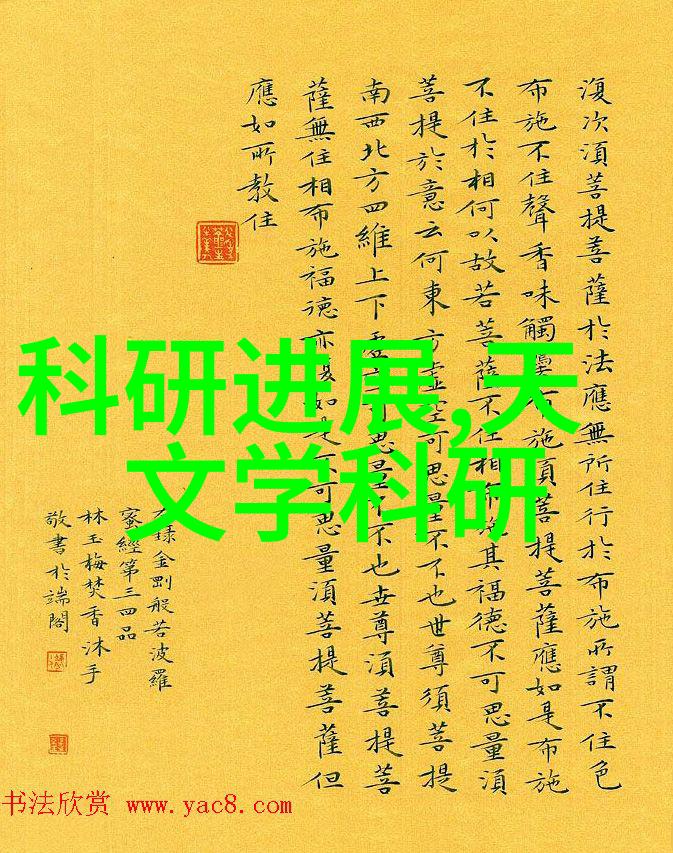 復次須菩提菩薩於法應無所住行於布施所謂不住色
布施不住聲香味觸布施須菩提菩薩應如是布施
不住於相何以故若菩薩不住相布施其福德不可思量須
菩提於意云何東方虛空可思量不不也世尊須菩提
南西北方四維上下虛可思量不不也世尊須菩提菩
薩無住相布施福德亦復如是不可思量須菩提菩薩但
應如所教住
科研进展,天
文学科研
錄金剛般若波羅
蜜經第三四品
林玉梅焚香沐手
敬書於端閣
书法欣赏 www.yac8.com